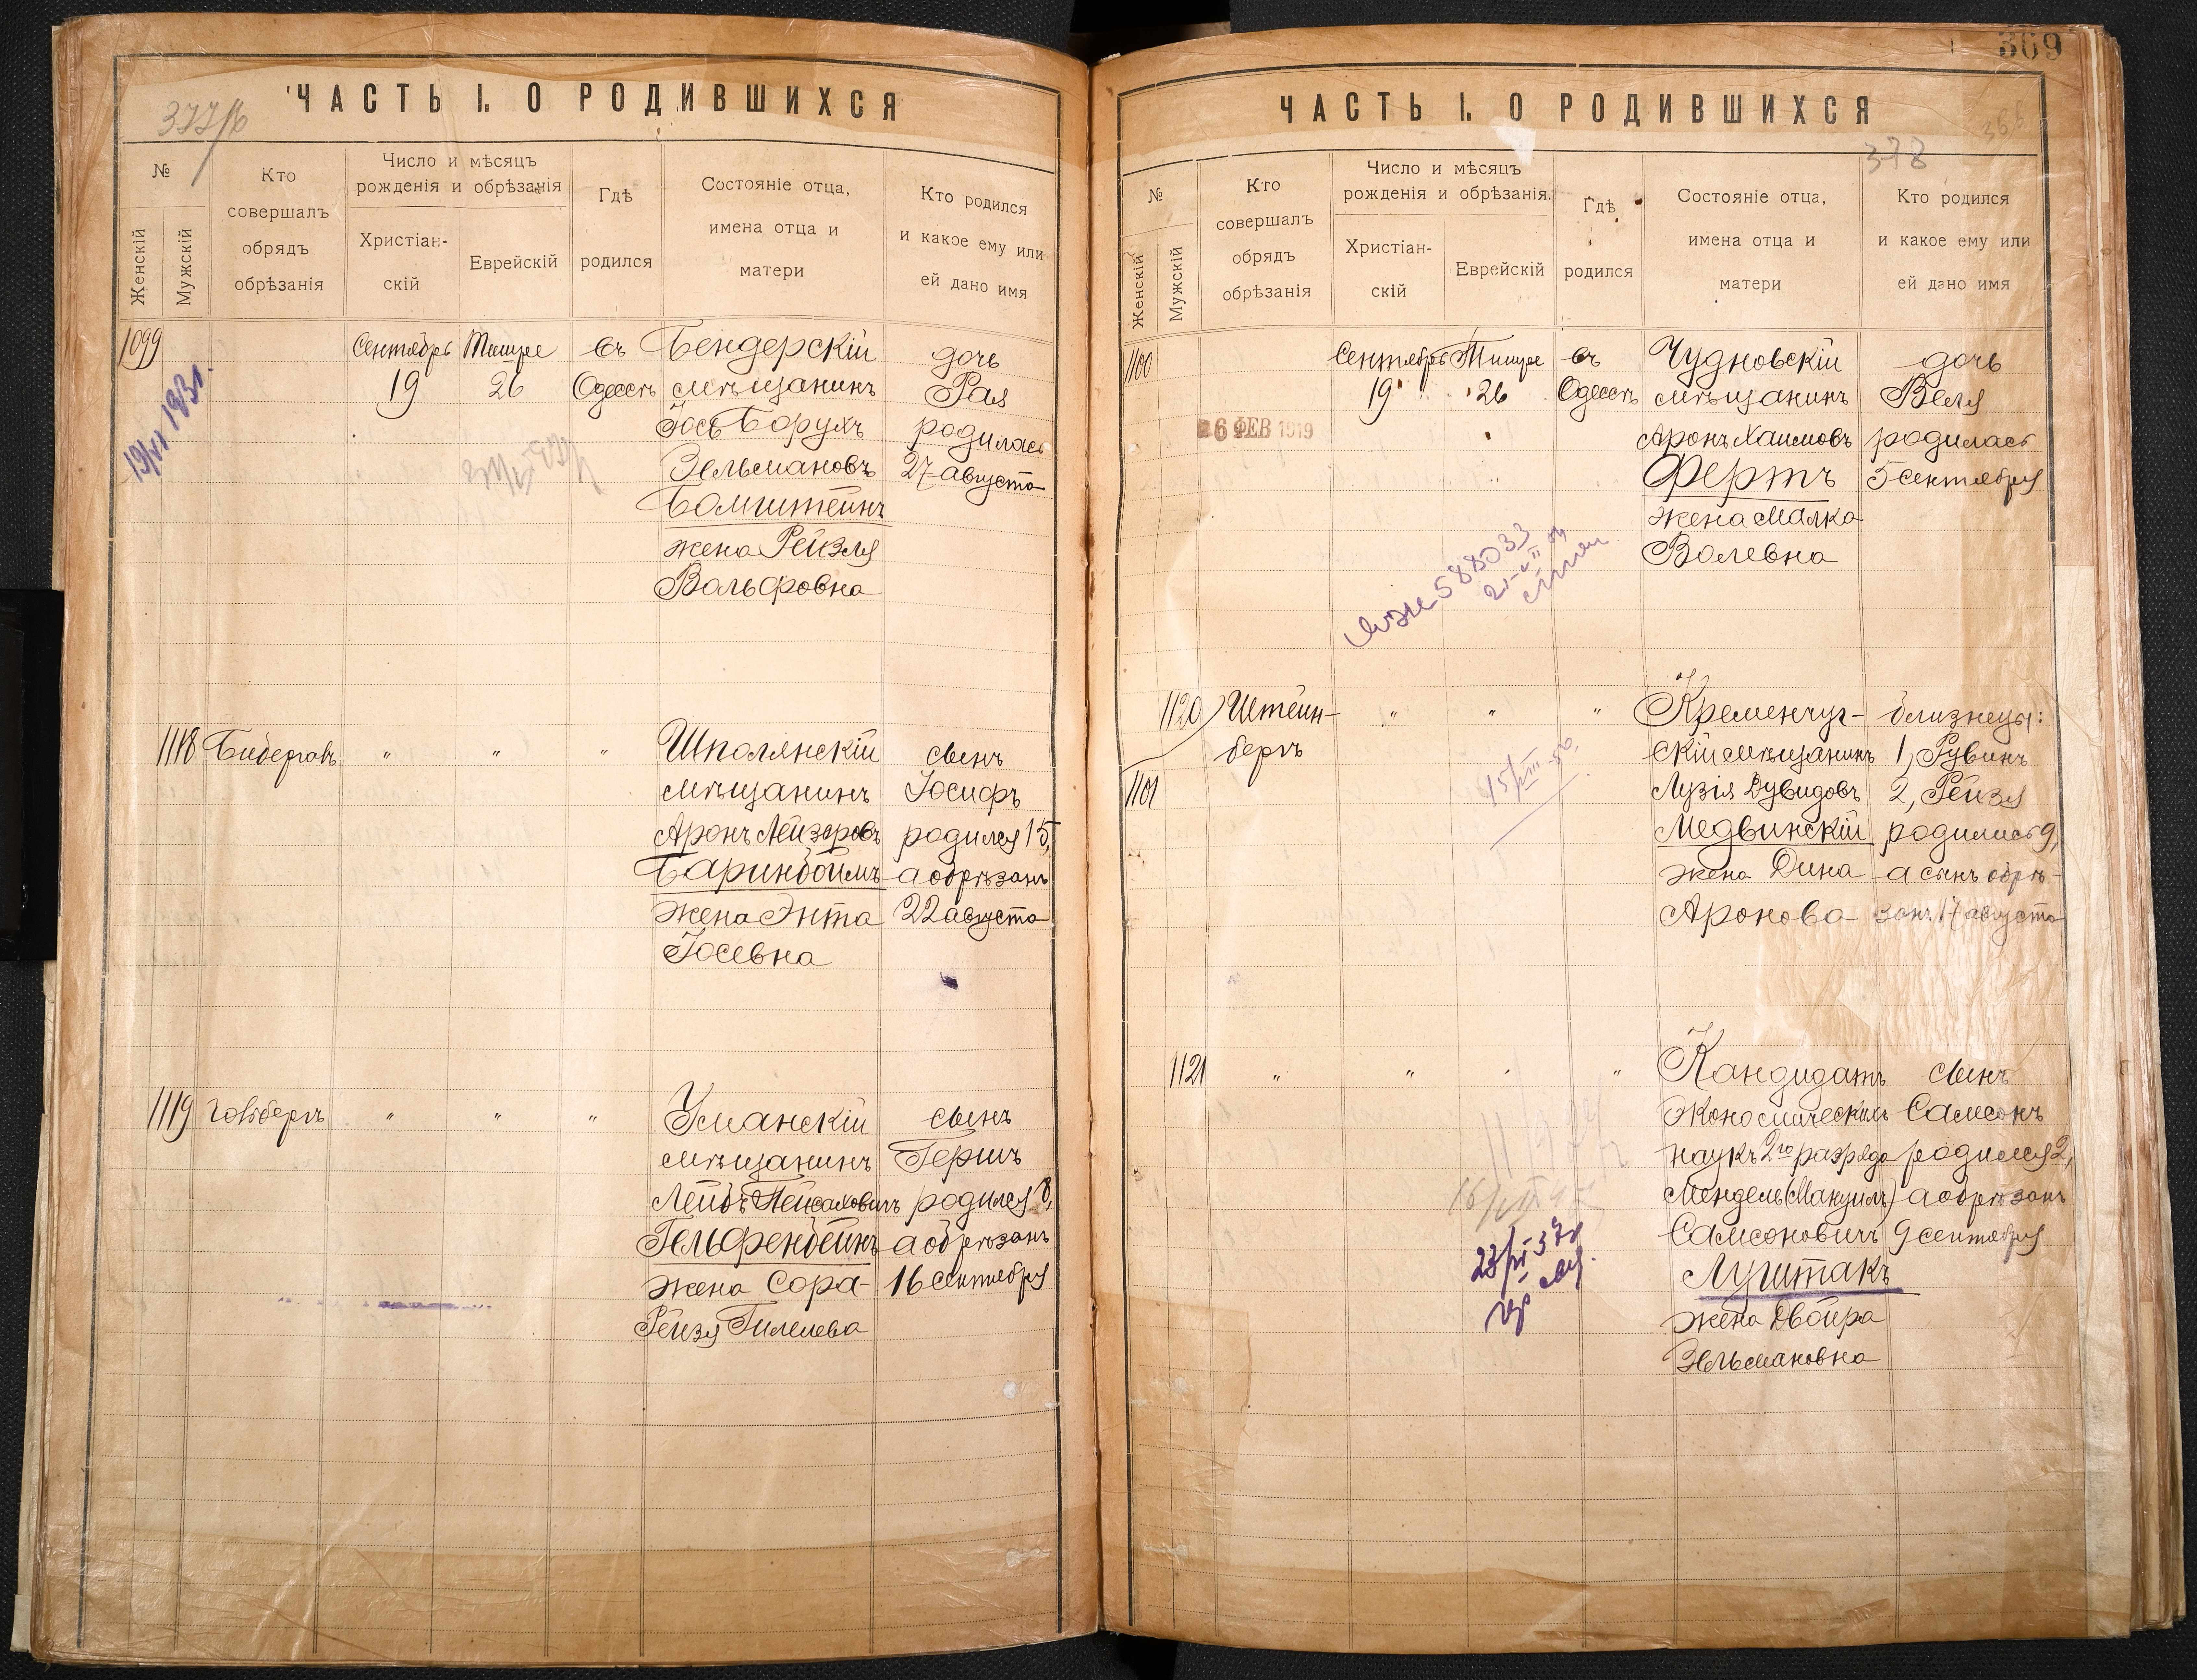 ЧАСТЬ I. О РОДИВШИХСЯ
377/б
№
Женскій
Мужскій
Кто
совершалъ
обрядъ
обрѣзанія
Число и мѣсяцъ
рожденія и обрѣзанія
Христіан-
скій
Еврейскій
Гдѣ
родился
Состояніе отца,
имена отца и
матери
Кто родился
и какое ему или
ей дано имя
1099 Сентябрь Тишре въ Бендерскій дочь
19 26 Одессѣ мѣщанинъ Рая
Іось Борухъ родилась
Зельмановъ 27 августа
Бомштейнъ
жена Рейзля
Вольфовна
19/VI 1931.
1118 " " " Шполянскій сынъ
мѣщанинъ Іосифъ
Аронъ Лейзеровъ родился 15,
Баринбоймъ а обрѣзанъ
жена Энта 22 августа
Іосевна
1119 " " " Уманскій сынъ
мѣщанинъ Гершъ
Лейбъ Пейсаховичъ родился 8,
Гельфенбейнъ а обрѣзанъ
жена Сора 16 сентября
Рейзя Гилелева
369
ЧАСТЬ I. О РОДИВШИХСЯ
378
№
Женскій
Мужскій
Кто
совершалъ
обрядъ
обрѣзанія
Число и мѣсяцъ
рожденія и обрѣзанія.
Христіан-
скій
Еврейскій
Гдѣ
родился
Состояніе отца,
имена отца и
матери
Кто родился
и какое ему или
ей дано имя
1100 Сентябрь Тишре въ Чудновскій дочь
19 26 Одессѣ мѣщанинъ Веля
26 ФЕВ 1919 Аронъ Хаимовъ родилась
Фертъ 5 сентября
жена Малка
Волевна
588033
1120 Штейн- " " " Кременчуг- близнецы:
бергъ скій мѣщанинъ 1, Рувинъ
1101 Лузія Дувидовъ 2, Рейзя
Медвинскій родились 9,
жена Дина а сынъ обрѣ-
Аронова занъ 17 августа
15/VIII-50.
1121 " " " " Кандидатъ сынъ
экономическихъ Самсонъ
наукъ 2го разряда родился 2,
Мендель (Мануилъ) а обрѣзанъ
Самсоновичъ 9 сентября
Луштакъ
жена Двойра
Зельмановна